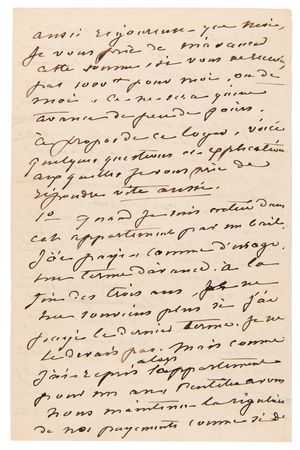 aussi rigoureuse que moi,
je vous prie de m'avancer
cette somme, si vous ne recevez
pas 1000 fr pour moi, ou de
moi, ce ne sera qu'une
avance de peu de jours.
À propos de ce loyer, voici
quelques questions et explications
auxquelles je vous prie de
répondre vite aussi.
1o Quand je suis entrée dans
cet appartement par un bail,
j'ai payé comme d'usage,
un terme d'avance. À la
fin des trois ans, je ne
me souviens plus si j'ai
payé le dernier terme. Je ne
le devais pas. Mais comme
j'ai repris alors l'appartement
pour un an, peut-être avons
nous maintenu la régularité
de nos payements comme si de